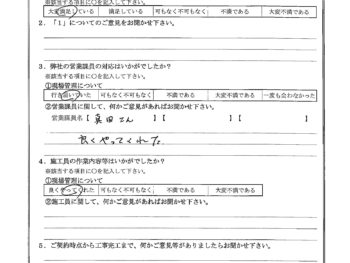 ※該当する項目に○を記入して下さい。
大変満足している 満足している 可もなく不可もなく 不満である 大変不満である
2．「1」についてのご意見をお聞かせ下さい。
3．弊社の営業課員の対応はいかがでしたか？
※該当する項目に○を記入して下さい。
①現場管理について
行き届いていた 可もなく不可もなく 不満である 大変不満である 一度も会わなかった
②営業課員に関して、何かご意見があればお聞かせ下さい。
営業課員名【 真田さん 】【 】【 】
良くやってくれた
4．施工員の作業内容等はいかがでしたか？
※該当する項目に○を記入して下さい。
①現場管理について
良くやってくれた 可もなく不可もなく 不満である 大変不満である
②施工員に関して、何かご意見があればお聞かせ下さい。
5．ご契約時点から工事完工まで、何かご意見等がありましたらお聞かせ下さい。